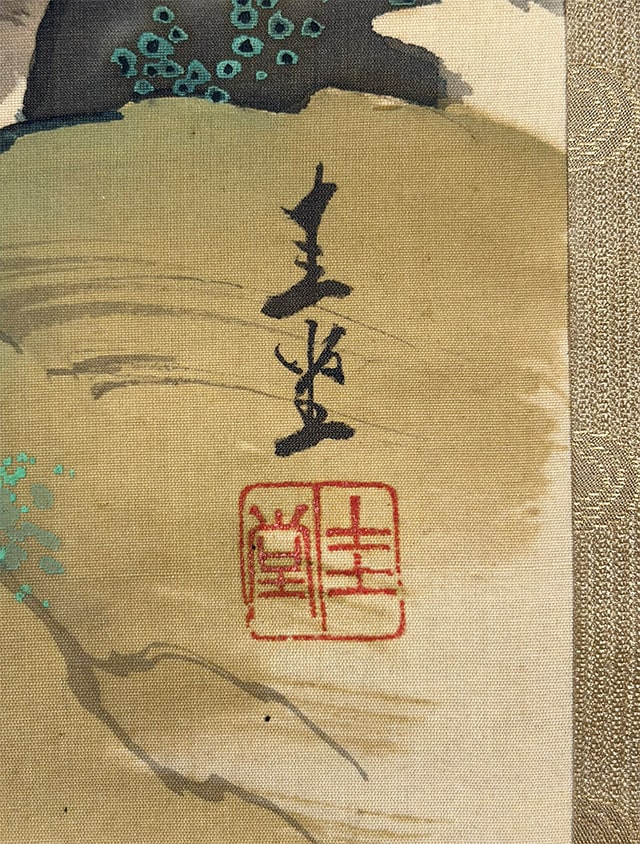 圭堂
圭堂